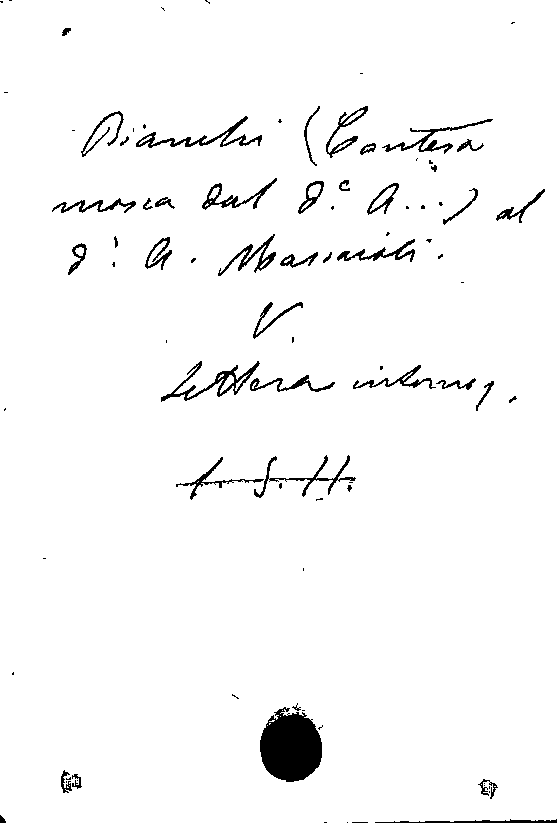 Bianchi (Contesa
mossa dal d.r A...) al
d.r A. Massaioli.
V.
Lettera intorno,
1. S. H.